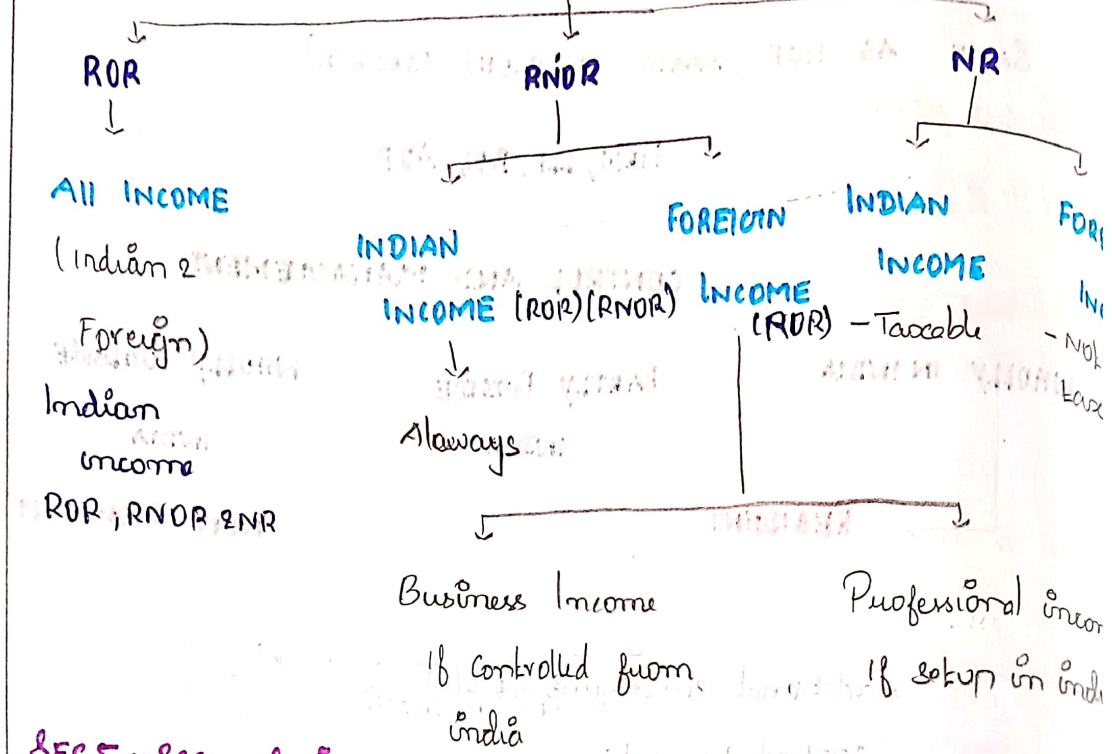 ROR
RNOR
NR
All INCOME
(Indian &
Foreign)
Indian
income
ROR, RNOR, & NR
INDIAN
INCOME (ROR) (RNOR)
Alaways
FOREIGN
INCOME
(ROR)
INDIAN
INCOME
- Taxable
FOR
INC
- Not
tax
Business Income
If controlled from
india
Professional incom
If setup in indi